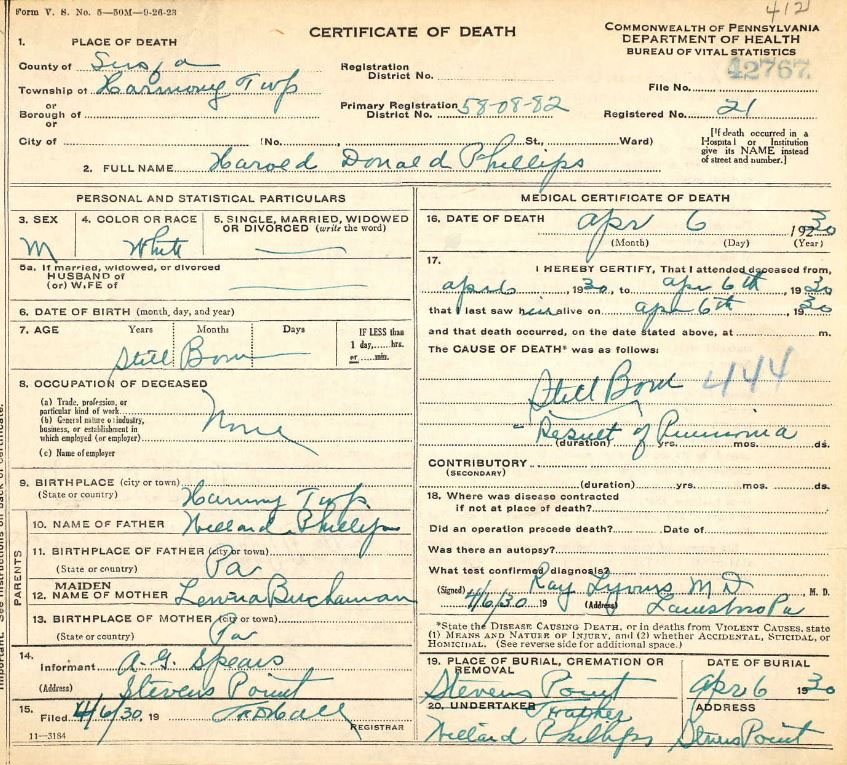 Form V. S. No. 5—50M—9-26-23
412
CERTIFICATE OF DEATH
COMMONWEALTH OF PENNSYLVANIA
DEPARTMENT OF HEALTH
BUREAU OF VITAL STATISTICS
1. PLACE OF DEATH
County of
Township of Harmony Twp
or
Borough of
or
City of (No. St., Ward)
Registration District No.
Primary Registration District No. 58-08-82
File No. 42767
Registered No. 21
[If death occurred in a Hospital or Institution give its NAME instead of street and number.]
2. FULL NAME Harold Donald Phillips
PERSONAL AND STATISTICAL PARTICULARS
3. SEX M
4. COLOR OR RACE White
5. SINGLE, MARRIED, WIDOWED OR DIVORCED (write the word)
5a. If married, widowed, or divorced
HUSBAND of
(or) WIFE of
6. DATE OF BIRTH (month, day, and year)
7. AGE Years Months Days IF LESS than 1 day, hrs. or min.
Still Born
8. OCCUPATION OF DECEASED
(a) Trade, profession, or particular kind of work
(b) General nature of industry, business, or establishment in which employed (or employer)
(c) Name of employer
None
9. BIRTHPLACE (city or town)
(State or country) Harmony Twp.
PARENTS
10. NAME OF FATHER Willard Phillips
11. BIRTHPLACE OF FATHER (city or town)
(State or country) Pa
12. MAIDEN NAME OF MOTHER Buchanan
13. BIRTHPLACE OF MOTHER (city or town)
(State or country) Pa
14. Informant A. G. Spears
(Address) Stevens Point
15. Filed 4/6/30 19
REGISTRAR
11—3184
MEDICAL CERTIFICATE OF DEATH
16. DATE OF DEATH Apr 6 19230
(Month) (Day) (Year)
17. I HEREBY CERTIFY, That I attended deceased from,
apr 6 1930, to apr 6th, 1930
that I last saw him alive on apr 6th, 1930
and that death occurred, on the date stated above, at m.
The CAUSE OF DEATH* was as follows:
Still Born 444
Result of
(duration) yrs. mos. ds.
CONTRIBUTORY
(SECONDARY)
(duration) yrs. mos. ds.
18. Where was disease contracted
if not at place of death?
Did an operation precede death? Date of
Was there an autopsy?
What test confirmed diagnosis?
(Signed) Ray Lyons M D M. D.
4/6/30 19 (Address) Pa
*State the DISEASE CAUSING DEATH, or in deaths from VIOLENT CAUSES, state (1) MEANS AND NATURE OF INJURY, and (2) whether ACCIDENTAL, SUICIDAL, or HOMICIDAL. (See reverse side for additional space.)
19. PLACE OF BURIAL, CREMATION OR REMOVAL Stevens Point
DATE OF BURIAL Apr 6 1930
20. UNDERTAKER Father
Willard Phillips
ADDRESS
Stevens Point